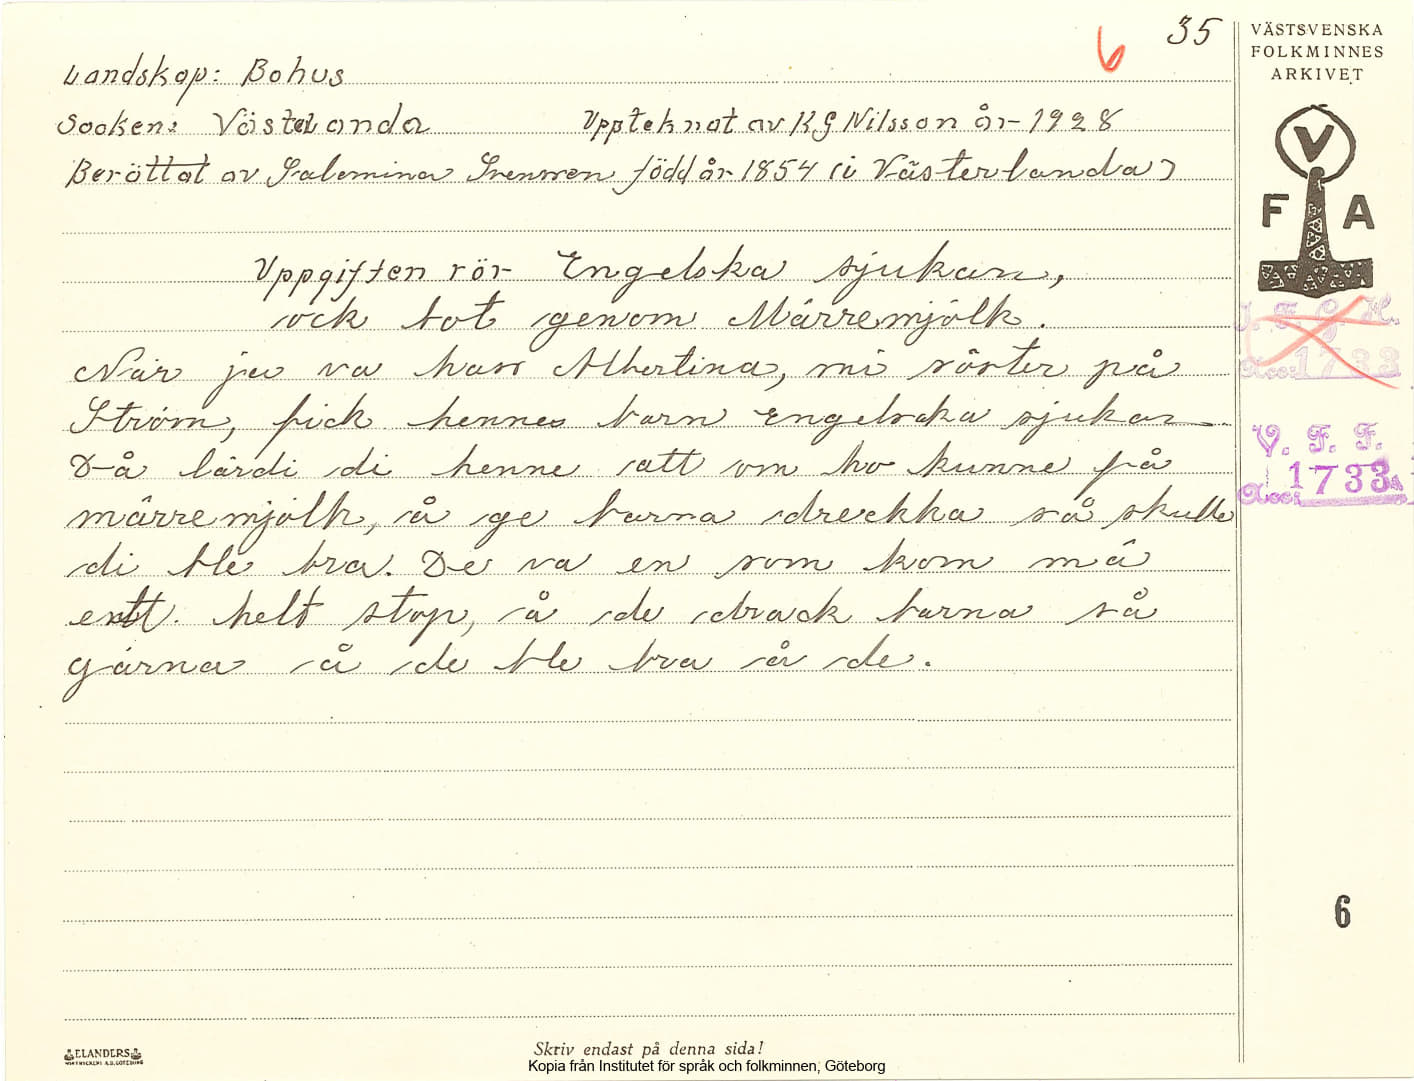 35
6
VÄSTSVENSKA
FOLKMINNES
ARKIVET
Landskap: Bohus
Socken: Västerlanda Upptecknat av KG Nilsson år 1928
Berättat av Salemina Svensson född år 1854 (i Västerlanda)
V
F A
Uppgiften rör Engelska sjukan,
ock bot genom Märremjölk.
När ja va hos Albertina, mi söster på
Ström, fick hennes barn Engelska sjukan.
Då lärdi di henne att om ho kunne få
märremjölk, å ge barna dreckka så skulle
di ble bra. De va en som kom mä
ett helt stop, å de drack barna så
gärna å de ble bra å de.
I. F. G. H.
Acc: 1733
V. F. F.
Acc: 1733
6
ELANDERS
Skriv endast på denna sida!
Kopia från Institutet för språk och folkminnen, Göteborg